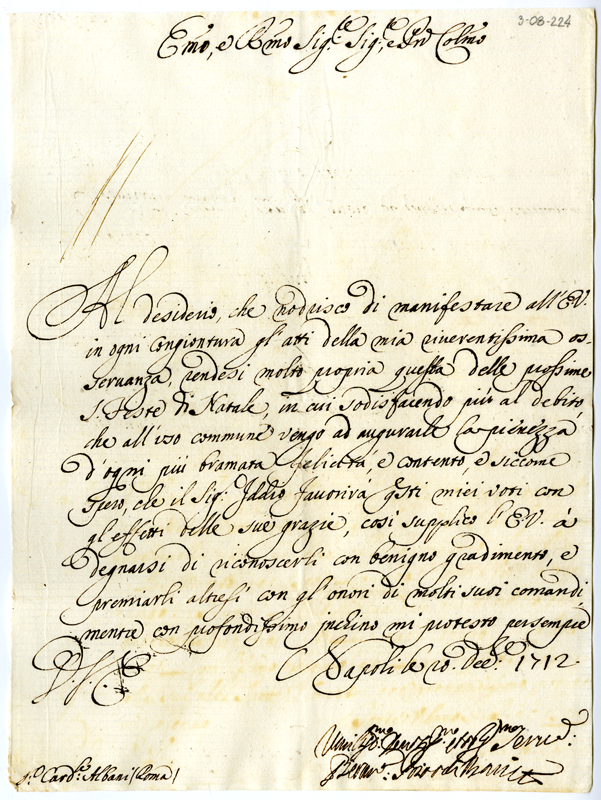 3-08-224
Emo, e Rmo Sig.re Sig.re, e Pne Colmo
Al desiderio, che nodrisco di manifestare all'E.V.
in ogni congiontura gl'atti della mia riverentissima os-
servanza, rendesi molto propria questa delle prossime
S. Feste di Natale, in cui sodisfacendo più al debito,
che all'uso commune vengo ad augurarle la pienezza
d'ogni più bramata felicità, e contento, e siccome
spero, che il Sig.r Iddio favorirà q̃sti miei voti con
gl'effetti delle sue grazie, così supplico l'E.V. à
degnarsi di riconoscerli con benigno gradimento, e
premiarli altresì con gl'onori di molti suoi comandi,
mentre con profondissimo inchino mi protesto per sempre
D.V.E.
Napoli le 20. Decre. 1712.
Umil.mo Devot.mo ed Obl.mo Serv.e
S.r Card.le Albani (Roma)